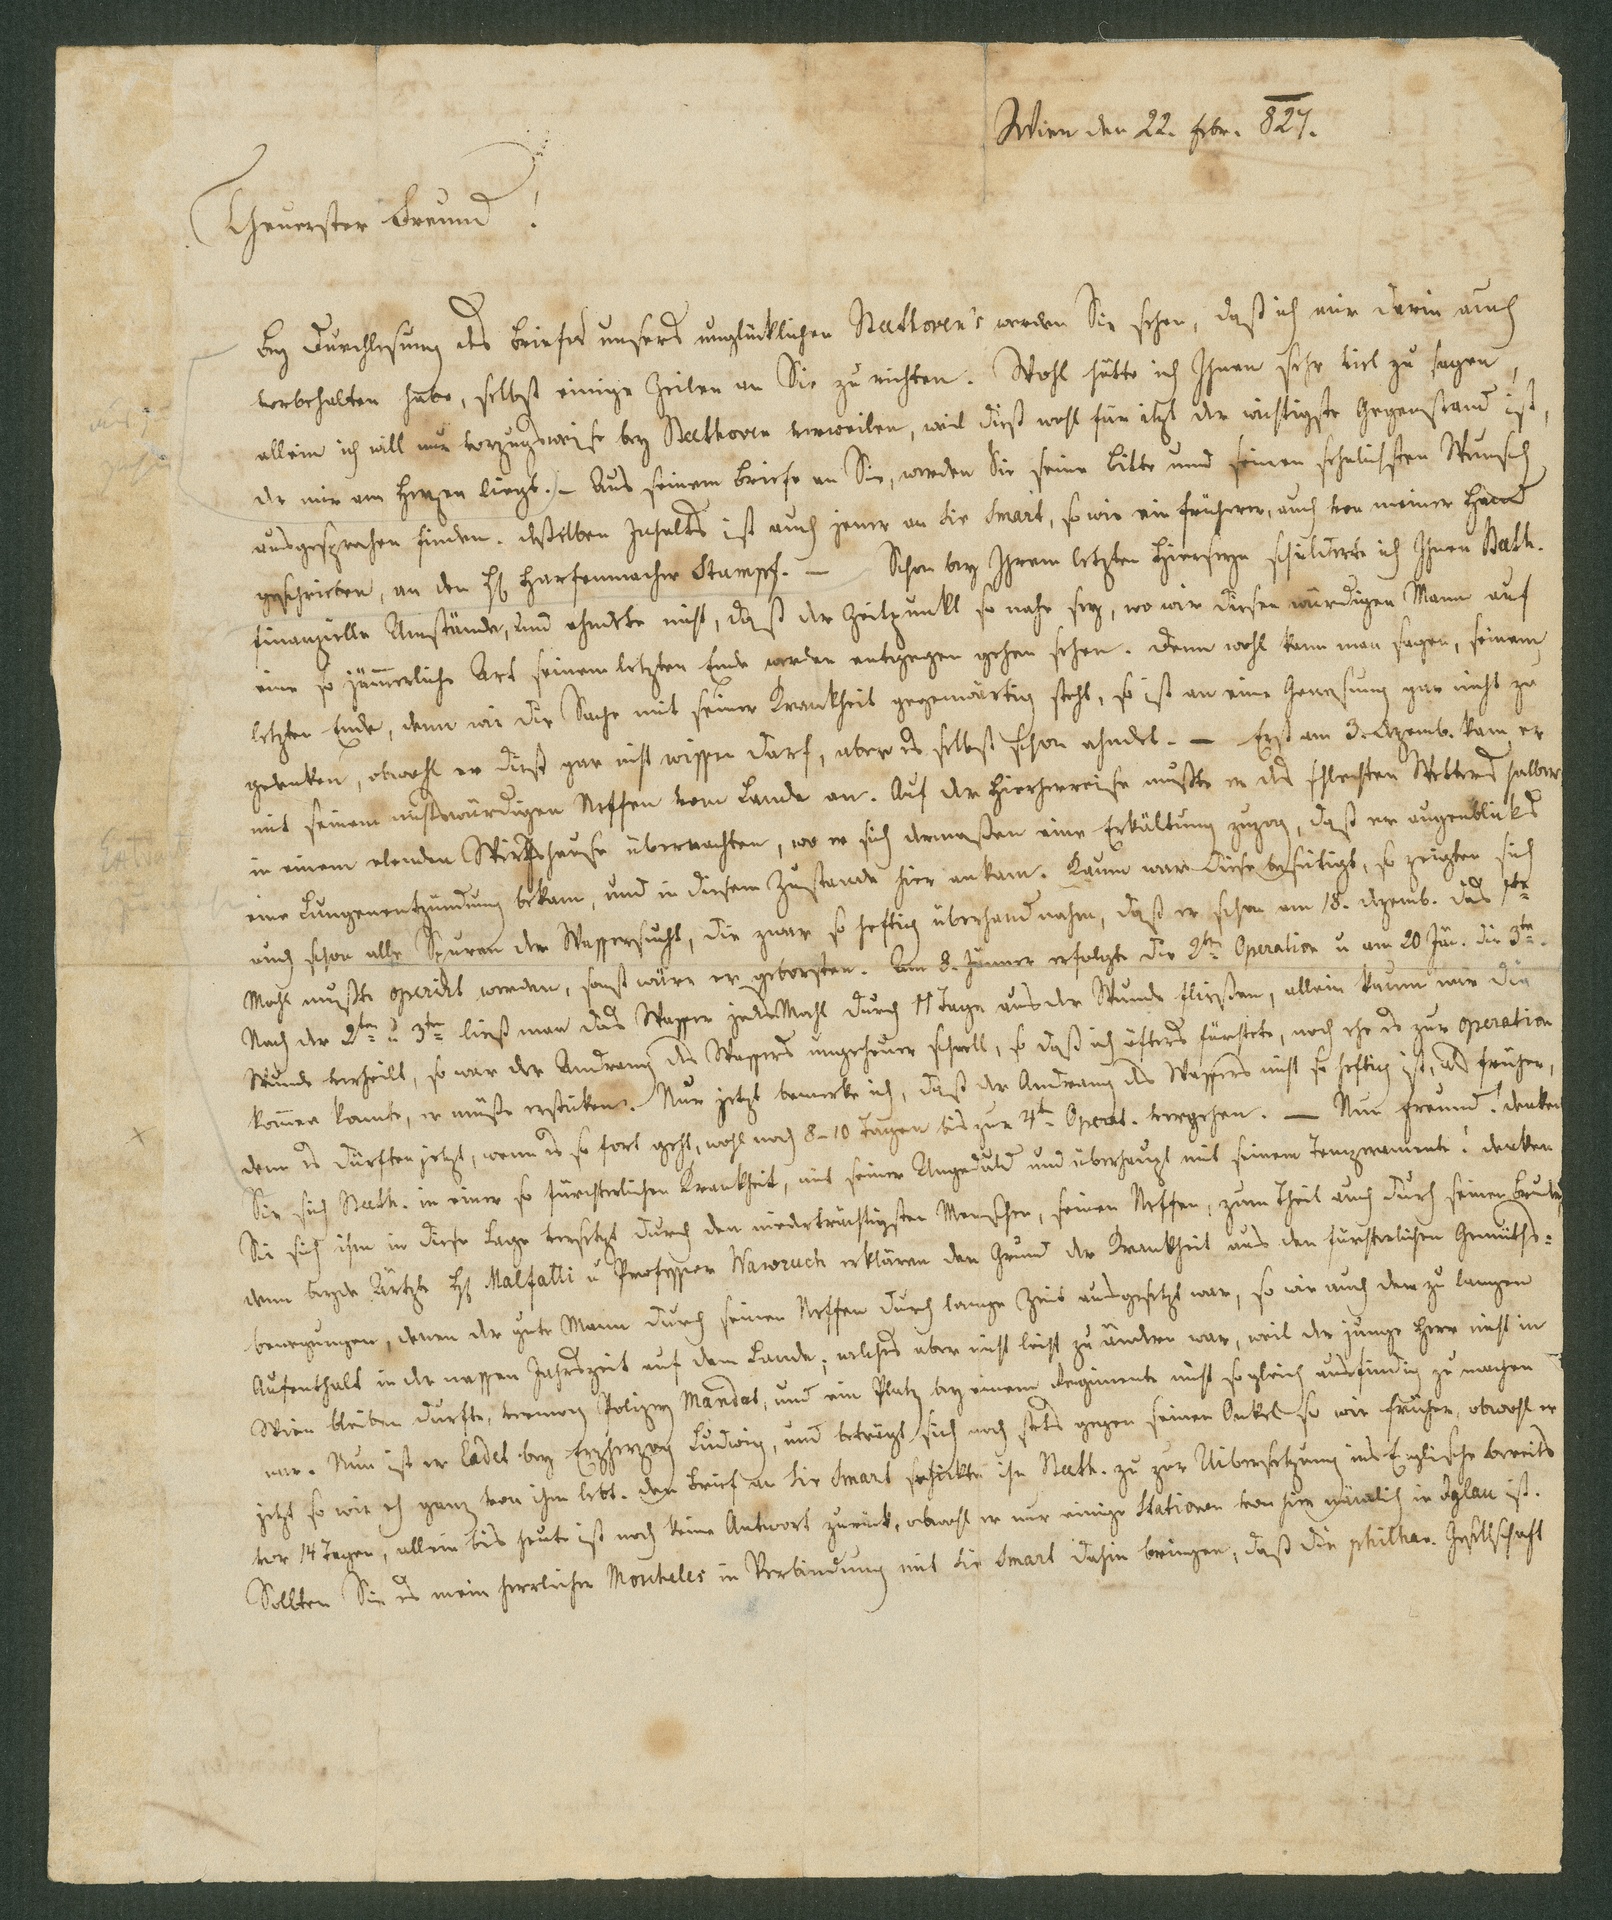 Wien den 22. Febr. 827.
Theuerster Freund!
Bey Durchlesung des Briefes unsers unglücklichen Beethoven's werden Sie sehen, daß ich mir darin auch
vorbehalten habe, selbst einige Zeilen an Sie zu richten. Wohl hätte ich Ihnen sehr viel zu sagen,
allein ich will nur vorzugsweise bey Beethoven verweilen, weil dieß wohl für itzt der wichtigste Gegenstand ist,
der mir am Herzen liegt. – Aus seinem Briefe an Sie, werden Sie seine Bitte und seinen sehnlichsten Wunsch
ausgesprochen finden. Desselben Inhalts ist auch jener an Sir Smart, so wie ein früherer, auch von meiner Hand
geschrieben, an den H. Harfenmacher Stumpf. — Schon bey Ihrem letzten Hierseyn schilderte ich Ihnen Beeth.
finanzielle Umstände, und ahndete nicht, daß der Zeitpunkt so nahe sey, wo wir diesen würdigen Mann auf
eine so jämerliche Art seinem letzten Ende werden entgegen gehen sehen. Denn wohl kann man sagen, seinem
letzten Ende, denn wie die Sache mit seiner Krankheit gegenwärtig steht, so ist an eine Genesung gar nicht zu
gedenken, obwohl er dieß gar nicht wissen darf, aber es selbst schon ahndet. — Erst am 3. Dezemb. kam er
mit seinem nichtswürdigen Neffen vom Lande an. Auf der Hierherreise mußte er des schlechten Wetters halber
in einem elenden Wirthshause übernachten, wo er sich dermaßen eine Erkältung zuzog, daß er augenbliks
eine Lungenentzündung bekam, und in diesem Zustande hier ankam. Kaum war diese beseitigt, so zeigten sich
auch schon alle Spuren der Wassersucht, die zwar so heftig überhand nahm, daß er schon am 18. Dezemb. das 1te
Mahl mußte operirt werden, sonst wäre er geborsten. Am 8. Jänner erfolgte die 2te Operation u am 20 Jän. die 3te.
Nach der 2ten u 3ten ließ man das Wasser jedes Mahl durch 11 Tage aus der Wunde fließen, allein kaum war die
Wunde verheilt, so war der Andrang des Wassers ungeheuer schnell, so daß ich öfters fürchtete, noch ehe es zur Operation
komen konnte, er müße ersticken. Nur jetzt bemerke ich, daß der Andrang des Wassers nicht so heftig ist, als früher,
denn es dürften jetzt, wenn es so fort geht, wohl noch 8–10 Tagen bis zur 4ten Operat. vergehen. — Nun Freund! denken
Sie sich Beeth. in einer so fürchterlichen Krankheit, mit seiner Ungeduld und überhaupt mit seinem Temperamente! denken
Sie sich ihn in diese Lage versetzt durch den niederträchtigsten Menschen, seinen Neffen, zum Theil auch durch seinen Bruder,
denn beyde Ärtzte H. Malfatti u Professor Wawruch erklären den Grund der Krankheit aus den fürchterlichen Gemüths=
bewegungen, denen der gute Mann durch seinen Neffen durch lange Zeit ausgesetzt war, so wie auch dem zu langen
Aufenthalt in der nassen Jahrszeit auf dem Lande; welches aber nicht leicht zu ändern war, weil der junge Herr nicht in
Wien bleiben durfte, vermög Polizey Mandat, und ein Platz bey einem Regimente nicht sogleich ausfindig zu machen
war. Nun ist er Cadet bey Erzherzog Ludwig, und beträgt sich noch stets gegen seinen Onkel so wie früher, obwohl er
jetzt so wie eh ganz von ihm lebt. Den Brief an Sir Smart schickte ihm Beeth. zu zur Uibersetzung ins Englische bereits
vor 14 Tagen, allein bis heute ist noch keine Antwort zurück, obwohl er nur einige Stationen von hier nämlich in Iglau ist.
Sollten Sie es mein herrlicher Moscheles in Verbindung mit Sir Smart dahin bringen, daß die philhar. Gesellschaft